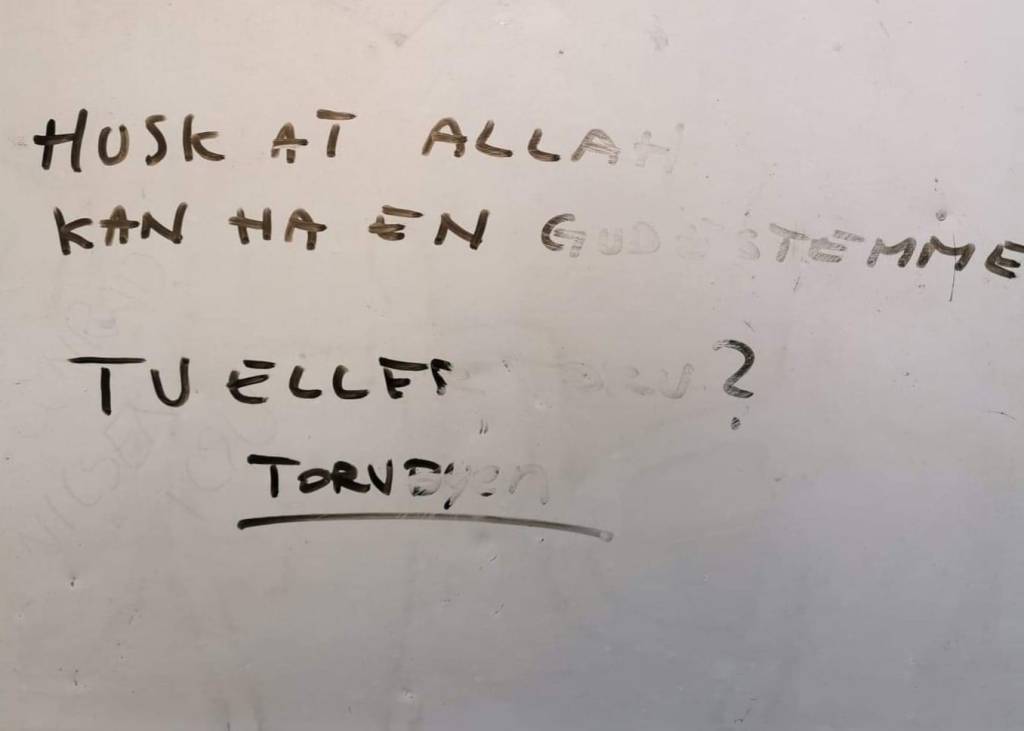 HUSK AT ALLAH
KAN HA EN GUDESTEMME
TU ELLER ?
TORVØyen